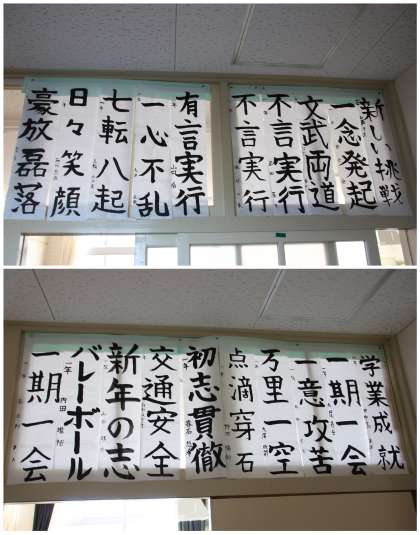 新しい挑戦
一念発起
文武両道
不言実行
不言実行
有言実行
一心不乱
七転八起
日々笑顔
豪放磊落
学業成就
一期一会
一意攻苦
万里一空
点滴穿石
初志貫徹
交通安全
新年の志
バレーボール
一期一会